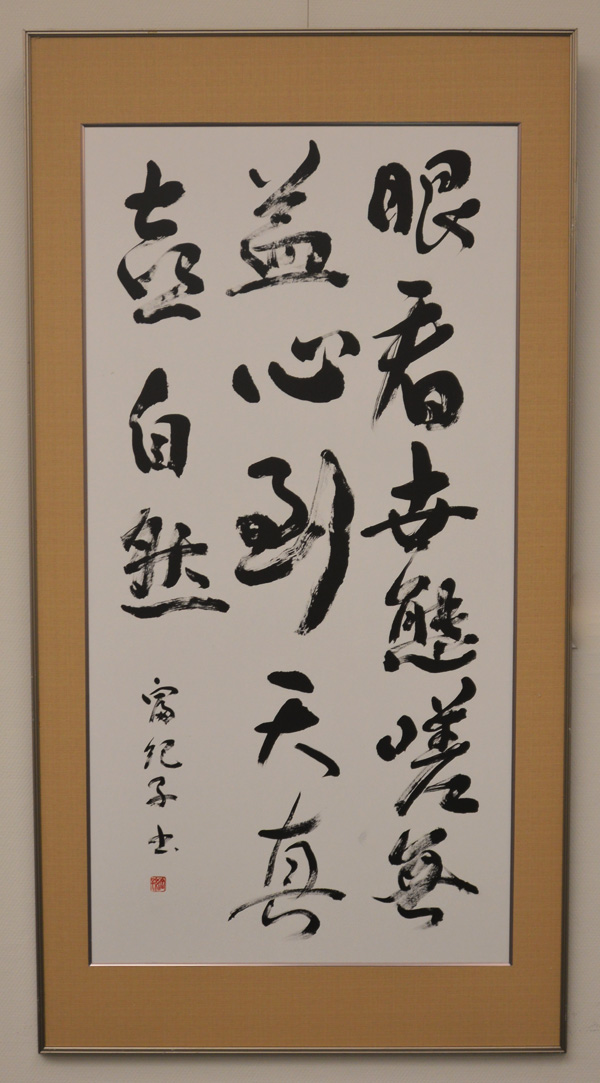 眼看世態嗟無
益心到天真
壺自然
富紀子書